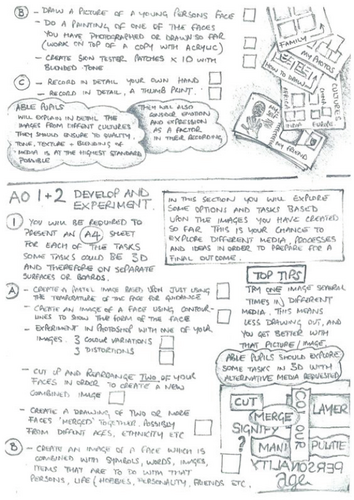 B - DRAW A PICTURE OF A YOUNG PERSONS FACE
- DO A PAINTING OF ONE OF THE FACES
YOU HAVE PHOTOGRAPHED OR DRAWN SO FAR
(WORK ON TOP OF A COPY WITH ACRYLIC)
- CREATE SKIN TESTER PATCHES x 10 WITH
BLENDED TONE
C - RECORD IN DETAIL YOUR OWN HAND
- RECORD IN DETAIL, A THUMB PRINT.
ABLE PUPILS
WILL EXPLAIN IN DETAIL THE
IMAGES FROM DIFFENT CULTURES
THEY SHOULD ENSURE TO QUALITY,
TONE, TEXTURE + BLENDING OF
MEDIA IS AT THE HIGHEST STANDARD
POSSIBLE
THEY WILL ALSO
CONSIDER EMOTION
AND EXPRESSION
AS A FACTOR
IN THEIR RECORDING
FAMILY
MY PHOTOS
HOW TO DRAW
EYES
CULTURES
AFRICA
INDIA
CHINA
EUROPE
MY FRIEND
AO 1+2 DEVELOP AND
EXPERIMENT.
IN THIS SECTION YOU WILL EXPLORE
SOME OPTIONS AND TASKS BASED
UPON THE IMAGES YOU HAVE CREATED
SO FAR. THIS IS YOUR CHANCE TO
EXPLORE DIFFERENT MEDIA, PROCESSES
AND IDEAS IN ORDER TO PREPARE FOR A
FINAL OUTCOME.
1 YOU WILL BE REQUIRED TO
PRESENT AN A4 SHEET
FOR EACH OF THE TASKS
SOME TASKS COULD BE 3D
AND THEREFORE ON SEPARATE
SURFACES OR BOARDS.
A - CREATE A PASTEL IMAGE BASED UPON JUST USING
THE TEMPERATURE OF THE FACE FOR GUIDANCE
- CREATE AN IMAGE OF A FACE USING CONTOUR-
LINES TO SHOW THE FORM OF THE FACE
- EXPERIMENT IN PHOTOSHOP WITH ONE OF YOUR
IMAGES. 3 COLOUR VARIATIONS
3 DISTORTIONS
- CUT UP AND REARRANGE TWO OF YOUR
FACES IN ORDER TO CREATE A NEW
COMBINED IMAGE
- CREATE A DRAWING OF TWO OR MORE
FACES 'MERGED' TOGETHER, POSSIBLY
FROM DIFFERENT AGES, ETHNICITY ETC
B - CREATE AN IMAGE OF A FACE WHICH IS
COMBINED WITH SYMBOLS, WORDS, IMAGES,
ITEMS THAT ARE TO DO WITH THAT
PERSONS, LIFE (HOBBIES, PERSONALITY, FRIENDS ETC.
TOP TIPS
TRY ONE IMAGE SEVERAL
TIMES IN DIFFERENT
MEDIA. THIS MEANS
LESS DRAWING OUT, AND
YOU GET BETTER WITH
THAT PICTURE/IMAGE.
ABLE PUPILS SHOULD EXPLORE
SOME TASKS IN 3D WITH
ALTERNATIVE MEDIA REQUESTED
CUT
MERGE
SIGNIFY
MANI
COLOUR
LAYER
PULATE
PERSONALITY
Age